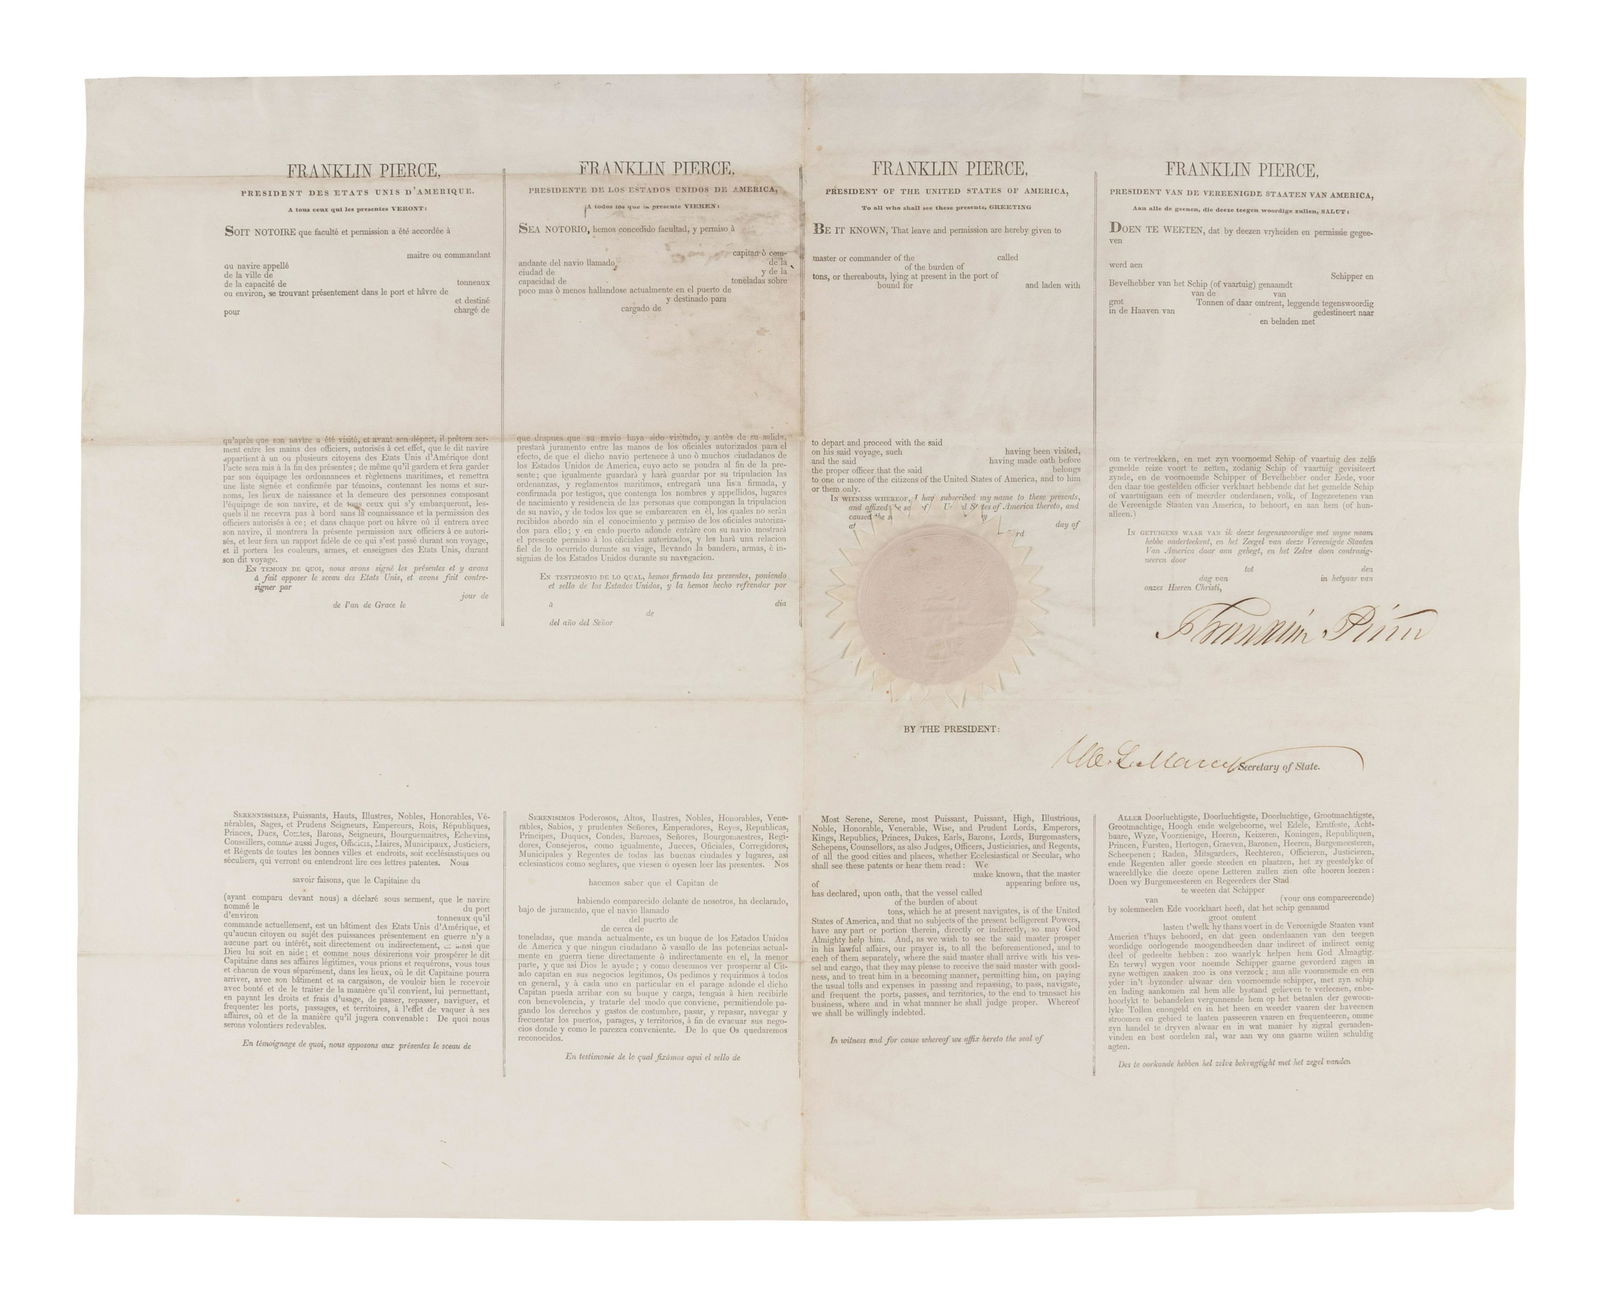 FRANKLIN PIERCE,
PRESIDENT DES ETATS UNIS D'AMERIQUE.
A tous ceux qui les presentes VERONT:
SOIT NOTOIRE que faculté et permission a été accordée à
maître ou commandant
au navire appellé
de la ville de
de la capacité de tonneaux
ou environ, se trouvant présentement dans le port et hâvre de
et destiné
pour chargé de
qu'après que son navire a été visité, et avant son départ, il prêtera ser-
ment entre les mains des officiers, autorisés à cet effet, que le dit navire
appartient à un ou plusieurs citoyens des Etats Unis d'Amérique dont
l'acte sera mis à la fin des présentes; de même qu'il gardera et fera garder
par son équipage les ordonnances et règlemens maritimes, et remettra
une liste signée et confirmée par témoins, contenant les noms et sur-
noms, les lieux de naissance et la demeure des personnes composant
l'équipage de son navire, et de tous ceux qui s'y embarqueront, les-
quels il ne recevra pas à bord sans la connaissance et la permission des
officiers autorisés à ce; et dans chaque port ou hâvre où il entrera avec
son navire, il montrera la présente permission aux officiers à ce autori-
sés, et leur fera un rapport fidèle de ce qui s'est passé durant son voyage,
et il portera les couleurs, armes, et enseignes des Etats Unis, durant
son dit voyage.
EN TEMOIN DE QUOI, nous avons signé les présentes et y avons
à fait apposer le sceau des Etats Unis, et avons fait contre-
signer par
jour de
de l'an de Grace le
FRANKLIN PIERCE,
PRESIDENTE DE LOS ESTADOS UNIDOS DE AMERICA,
A todos los que la presente VIEREN:
SEA NOTORIO, hemos concedido facultad, y permiso à
capitan ò com-
andante del navio llamado de la
ciudad de y de la
capacidad de toneladas sobre
poco mas ò menos hallandose actualmente en el puerto de
y destinado para
cargado de
que despues que su navio haya sido visitado, y antès de su salida,
prestará juramento entre las manos de los oficiales autorizados para el
efecto, de que el dicho navio pertenece à uno ò muchos ciudadanos de
los Estados Unidos de America, cuyo acto se pondra al fin de la pre-
sente; que igualmente guardará y hará guardar por su tripulacion las
ordenanzas, y reglamentos maritimos, entregará una lista firmada, y
confirmada por testigos, que contenga los nombres y appellidos, lugares
de nacimiento y residencia de las personas que compongan la tripulacion
de su navio, y de todos los que se embarcaren en él, los quales no serán
recibidos abordo sin el conocimiento y permiso de los oficiales autoriza-
dos para ello; y en cado puerto adonde entràre con su navio mostrará
el presente permiso à los oficiales autorizados, y les hará una relacion
fiel de lo ocurrido durante su viage, llevándo la bandera, armas, è in-
signias de los Estados Unidos durante su navegacion.
EN TESTIMONIO DE LO QUAL, hemos firmado las presentes, poniendo
et sello de los Estados Unidos, y la hemos hecho refrendar por
à dia
de
del año del Señor
FRANKLIN PIERCE,
PRESIDENT OF THE UNITED STATES OF AMERICA,
To all who shall see these presents, GREETING
BE IT KNOWN, That leave and permission are hereby given to
master or commander of the called
of the burden of
tons, or thereabouts, lying at present in the port of
bound for and laden with
to depart and proceed with the said
on his said voyage, such having been visited,
and the said having made oath before
the proper officer that the said belongs
to one or more of the citizens of the United States of America, and to him
or them only.
IN WITNESS WHEREOF, I have subscribed my name to these presents,
and affixed the seal of the United States of America thereto, and
caused the
at day of
FRANKLIN PIERCE,
PRESIDENT VAN DE VEREENIGDE STAATEN VAN AMERICA,
Aan alle de geenen, die deeze teegen woordige zullen, SALUT:
DOEN TE WEETEN, dat by deezen vryheiden en permissie gegee-
ven
werd aen
Schipper en
Bevelhebber van het Schip (of vaartuig) genaamdt
van de van
grot Tonnen of daar omtrent, leggende tegenswoordig
in de Haaven van gedestineert naar
en beladen met
om te vertreekken, en met zyn voornoemd Schip of vaartuig des zelfs
gemelde reize voort te zetten, zodanig Schip of vaartuig gevisiteert
zynde, en de voornoemde Schipper of Bevelhebber onder Eede, voor
den daar toe gestelden officier verklaart hebbende dat het gemelde Schip
of vaartuigaan een of meerder onderdanen, volk, of Ingezeetenen van
de Vereenigde Staaten van America, to behoort, en aan hem (of hun-
alleen.)
IN GETUIGENS WAAR VAN ik deeze teegenswoordige met myne naam
hebbe onderteekent, en het Zeegel van deeze Vereenigde Staaten
Van America daar aan gehegt, en het Zelve doen contrasig-
neeren door
tot den
dag van in hetyaar van
onzes Heeren Christi,
Franklin Pierce
BY THE PRESIDENT:
W. L. Marcy Secretary of State.
SERENNISSIMES, Puissants, Hauts, Illustres, Nobles, Honorables, Vé-
nérables, Sages, et Prudens Seigneurs, Empereurs, Rois, Républiques,
Princes, Ducs, Comtes, Barons, Seigneurs, Bourguemaitres, Echevins,
Conseillers, comme aussi Juges, Officiers, Maires, Municipaux, Justiciers,
et Régents de toutes les bonnes villes et endroits, soit ecclésiastiques ou
séculiers, qui verront ou entendront lire ces lettres patentes. Nous
savoir faisons, que le Capitaine du
(ayant comparu devant nous) a déclaré sous serment, que le navire
nommé le du port
d'environ tonneaux qu'il
commande actuellement, est un bâtiment des Etats Unis d'Amérique, et
qu'aucun citoyen ou sujet des puissances présentement en guerre n'y a
aucune part ou intérêt, soit directement ou indirectement, ainsi que
Dieu lui soit en aide; et comme nous désirerions voir prospérer le dit
Capitaine dans ses affaires légitimes, vous prions et requérons, vous tous
et chacun de vous séparément, dans les lieux, où le dit Capitaine pourra
arriver, avec son bâtiment et sa cargaison, de vouloir bien le recevoir
avec bonté et de le traiter de la manière qu'il convient, lui permettant,
en payant les droits et frais d'usage, de passer, repasser, naviguer, et
frequenter les ports, passages, et territoires, à l'effet de vaquer à ses
affaires, où et de la manière qu'il jugera convenable: De quoi nous
serons volontiers redevables.
En témoignage de quoi, nous apposons aux présentes le sceau de
SERENISIMOS Poderosos, Altos, Ilustres, Nobles, Honorables, Vene-
rables, Sabios, y prudentes Señores, Emperadores, Reyes, Republicas,
Principes, Duques, Condes, Barones, Señores, Bourgomaestres, Regi-
dores, Consejeros, como igualmente, Jueces, Oficiales, Corregidores,
Municipales y Regentes de todas las buenas ciudades y lugares, asi
eclesiasticos como seglares, que viesen ò oyesen leer las presentes. Nos
hacemos saber que el Capitan de
habiendo comparecido delante de nosotros, ha declarado,
bajo de juramento, que el navio llamado
del puerto de
de cerca de
toneladas, que manda actualmente, es un buque de los Estados Unidos
de America y que ningun ciudadano ò vasallo de las potencias actual-
mente en guerra tiene directamente ò indirectamente en el, la menor
parte, y que asi Dios le ayude; y como deseamos ver prosperar al Cit-
ado capitan en sus negocios legitimos, Os pedimos y requirimos à todos
en general, y à cada uno en particular en el parage adonde el dicho
Capitan pueda arribar con su buque y carga, tengais à bien recibirle
con benevolencia, y tratarle del modo que conviene, permitiendole pa-
gando los derechos y gastos de costumbre, pasar, y repasar, navegar y
frecuentar los puertos, parages, y territorios, à fin de evacuar sus nego-
cios donde y como le parezca conveniente. De lo que Os quedaremos
reconocidos.
En testimonie de lo qual fixámos aqui el sello de
Most Serene, Serene, most Puissant, Puissant, High, Illustrious,
Noble, Honorable, Venerable, Wise, and Prudent Lords, Emperors,
Kings, Republics, Princes, Dukes, Earls, Barons, Lords, Burgomasters,
Schepens, Counsellors, as also Judges, Officers, Justiciaries, and Regents,
of all the good cities and places, whether Ecclesiastical or Secular, who
shall see these patents or hear them read: We
make known, that the master
of appearing before us,
has declared, upon oath, that the vessel called
of the burden of about
tons, which he at present navigates, is of the United
States of America, and that no subjects of the present belligerent Powers,
have any part or portion therein, directly or indirectly, so may God
Almighty help him. And, as we wish to see the said master prosper
in his lawful affairs, our prayer is, to all the beforementioned, and to
each of them separately, where the said master shall arrive with his ves-
sel and cargo, that they may please to receive the said master with good-
ness, and to treat him in a becoming manner, permitting him, on paying
the usual tolls and expenses in passing and repassing, to pass, navigate,
and frequent the ports, passes, and territories, to the end to transact his
business, where and in what manner he shall judge proper. Whereof
we shall be willingly indebted.
In witness and for cause whereof we affix hereto the seal of
ALLER Doorluchtigste, Doorluchtigste, Doorluchtige, Grootmachtigste,
Grootmachtige, Hoogh ende welgeboorne, wel Edele, Erntfeste, Acht-
baare, Wyze, Voorzienige, Heeren, Keizeren, Koningen, Republiquen,
Princen, Fursten, Hertogen, Graeven, Baronen, Heeren, Burgemeesteren,
Scheepenen; Raden, Mitsgarders, Rechteren, Officieren, Justicieren,
ende Regenten aller goede steeden en plaatzen, het zy geestelyke of
waereldlyke die deeze opene Letteren zullen zien ofte hooren leezen:
Doen wy Burgemeesteren en Regeerders der Stad
te weeten dat Schipper
van (voor ons compareerende)
by solemneelen Ede voorklaart heeft, dat het schip genaamd
groot omtent
lasten t'welk hy thans voert in de Vereenigde Staaten vant
America t'huys behoord, en dat geen onderdaanen van den teegen
wordidge oorlogende moogendheeden daar indirect of indirect eenig
deel of gedeelte hebben: zoo waarlyk helpen hem God Almagtig.
En terwyl wygen voor noemde Schipper gaarne gevorderd zagen in
zyne weftigen zaaken zoo is ons verzoek; aan alle voornoemde en een
yder in't byzonder alwaar den voornoemde schipper, met zyn schip
en lading aankomen zal hem alle bystand gelieven te verleenen, enbe-
hoorlykt te behandelen vergunnende hem op het betaalen der gewoon-
lyke Tollen enongeld en in het heen en weeder vaaren der haveenen
stroomen en gebied te laaten passeeren vaaren en frequenteeren, omme
zyn handel te dryven alwaar en in wat manier by zigzal geraaden-
vinden en best oordelen zal, war aan wy ons gaarne willen schuldig
agten.
Des te oorkonde hebben het zelve bekragtight met het zegel vanden